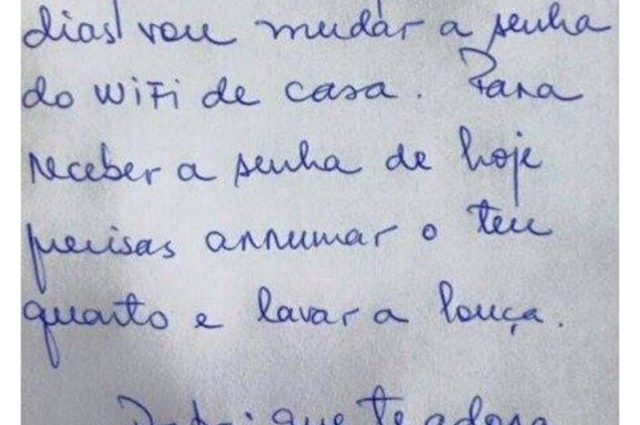 dias vou mudar a senha
do WiFi de casa. Para
receber a senha de hoje
precisas arrumar o teu
quarto e lavar a louça.
que te adora